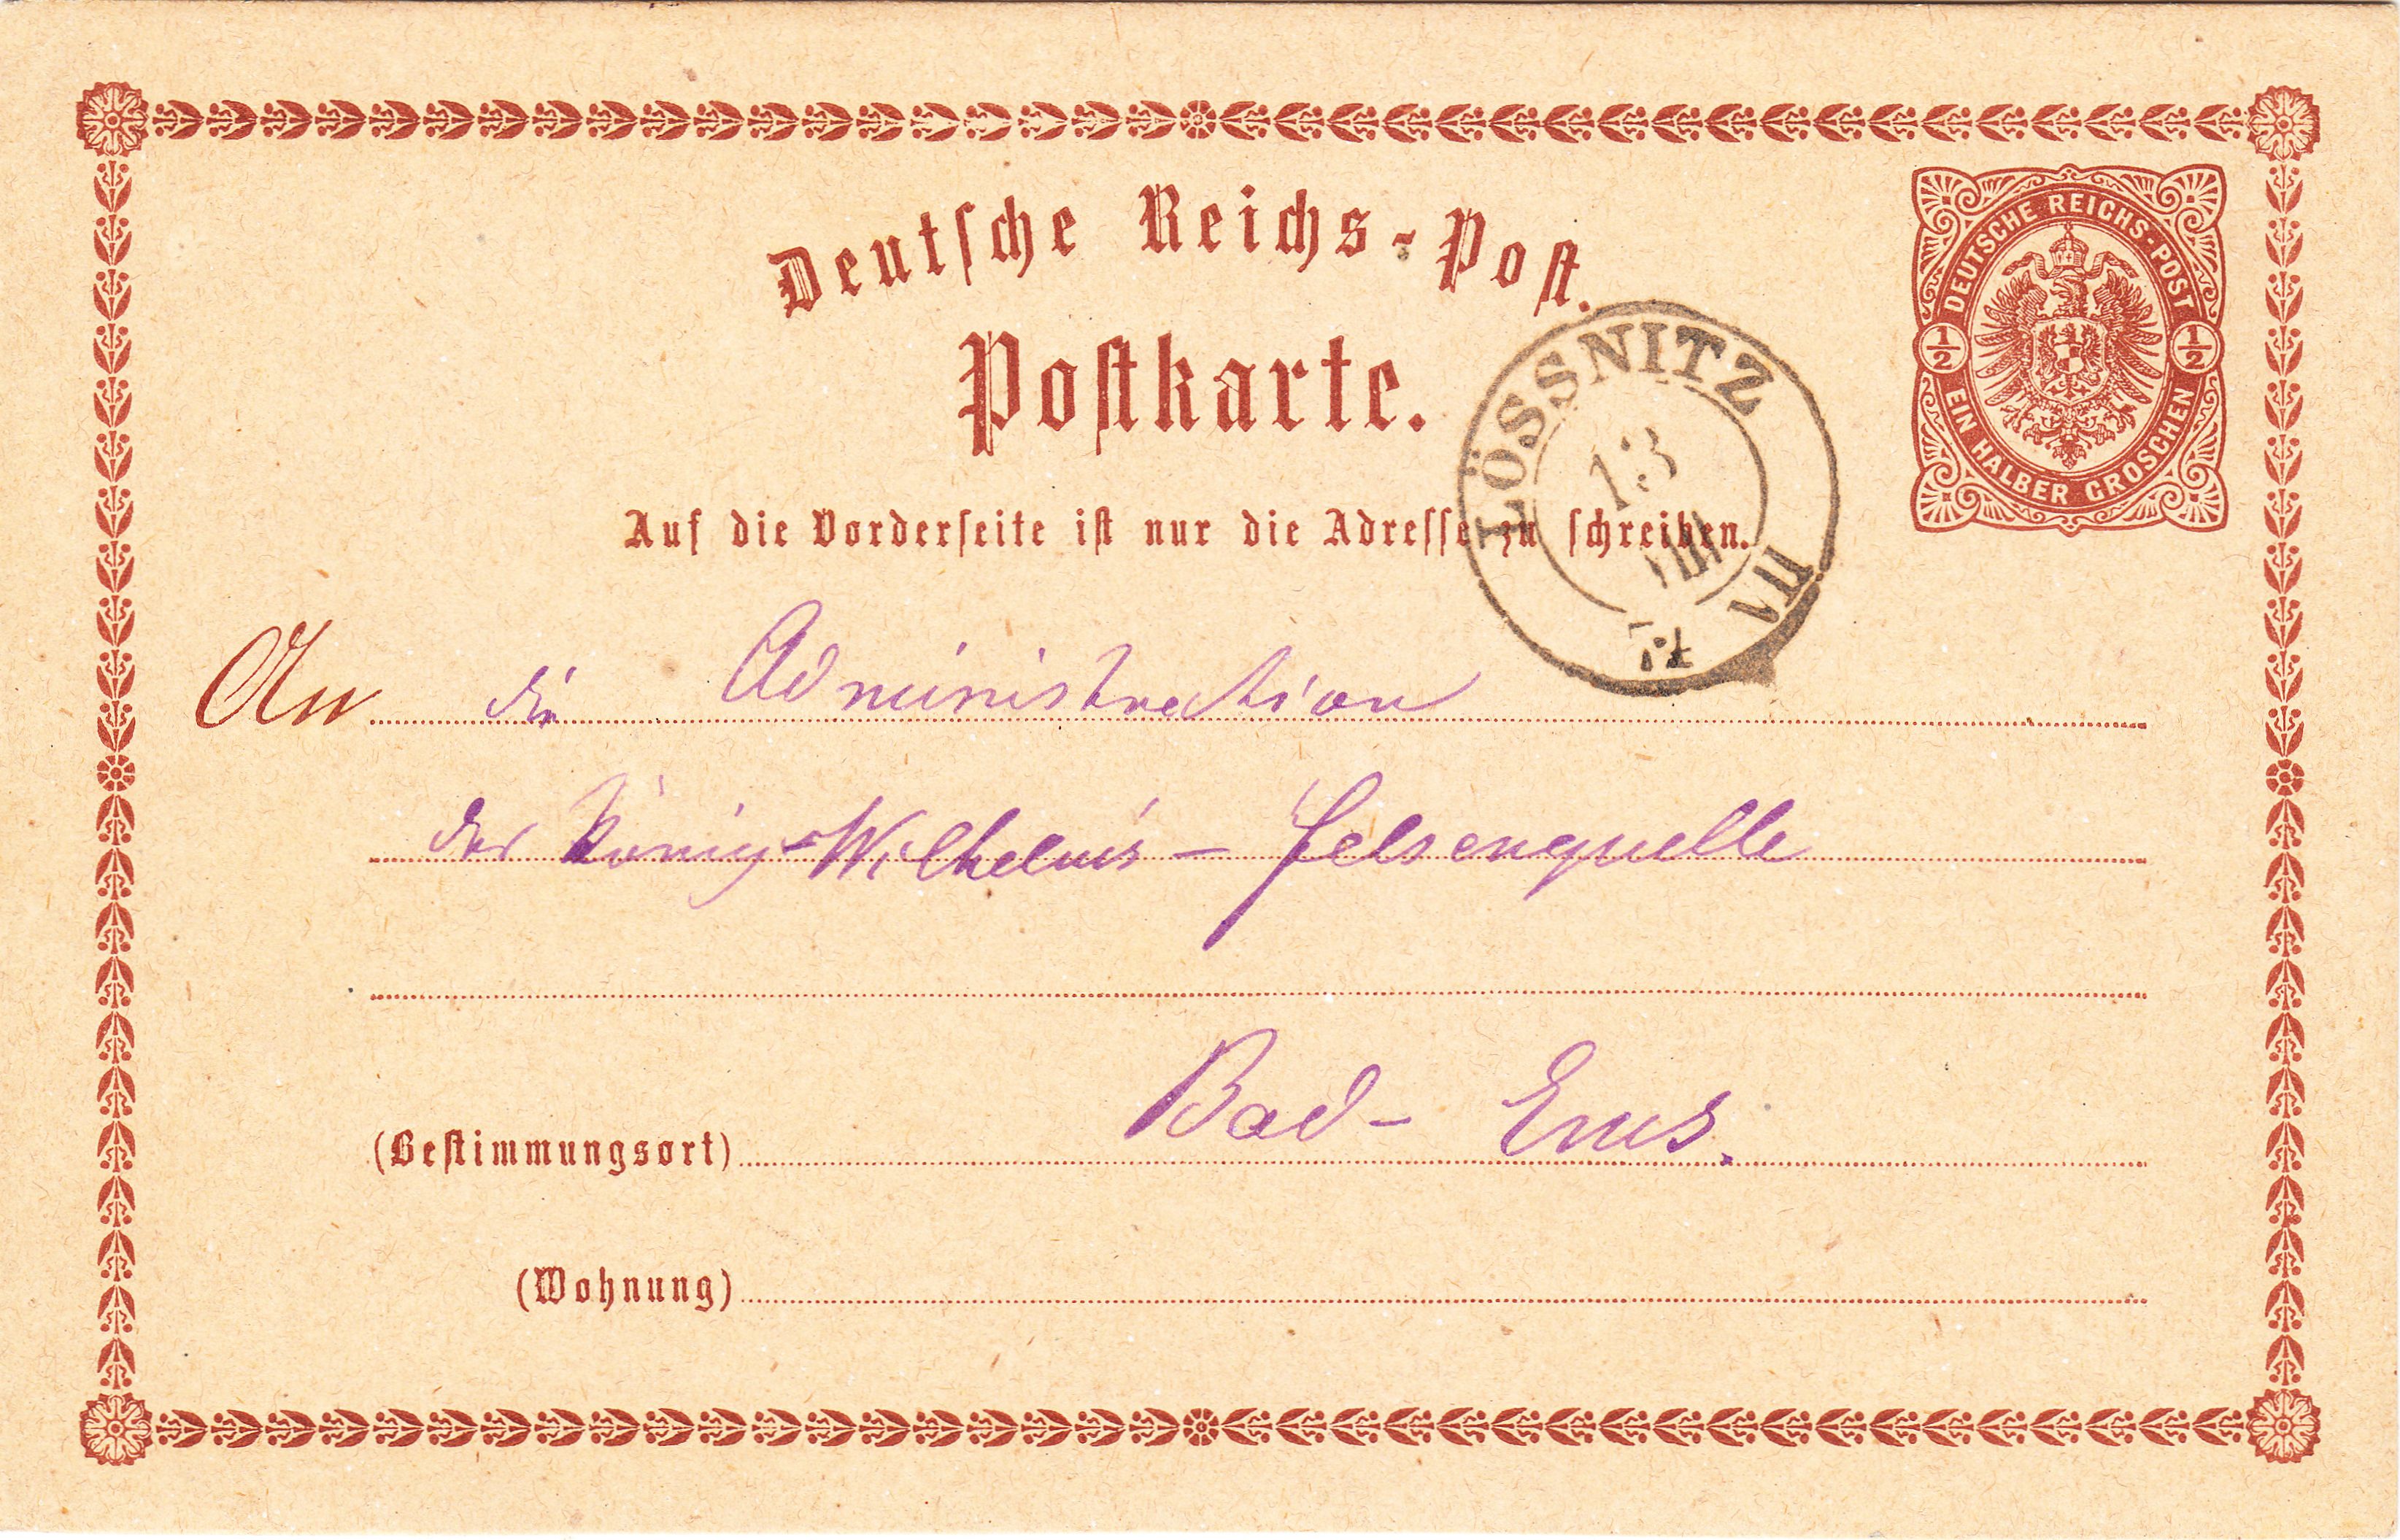 Deutsche Reichs-Post.
Postkarte.
DEUTSCHE REICHS-POST
1/2 1/2
EIN HALBER GROSCHEN
LÖSSNITZ
13
VIII
VII
Auf die Vorderseite ist nur die Adresse zu schreiben.
An die Administration
der König-Wilhelm's-Felsenquelle
(Bestimmungsort) Bad-Ems.
(Wohnung)